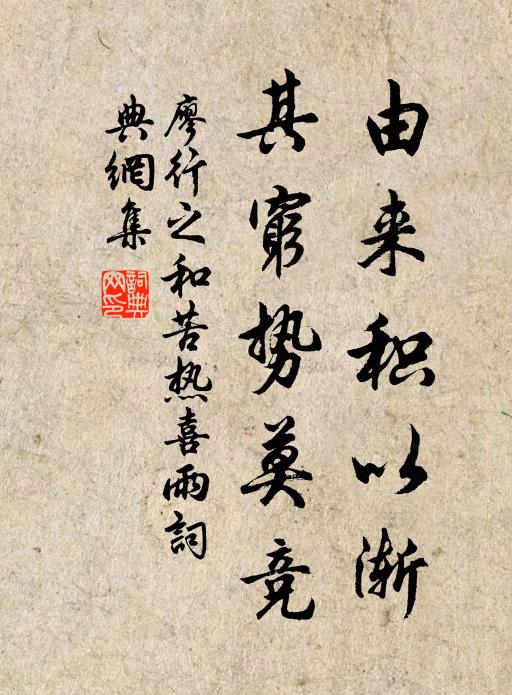 由来积以渐
其窮势莫竞
廖行之和苦热喜雨詞
典網集
詞典網印